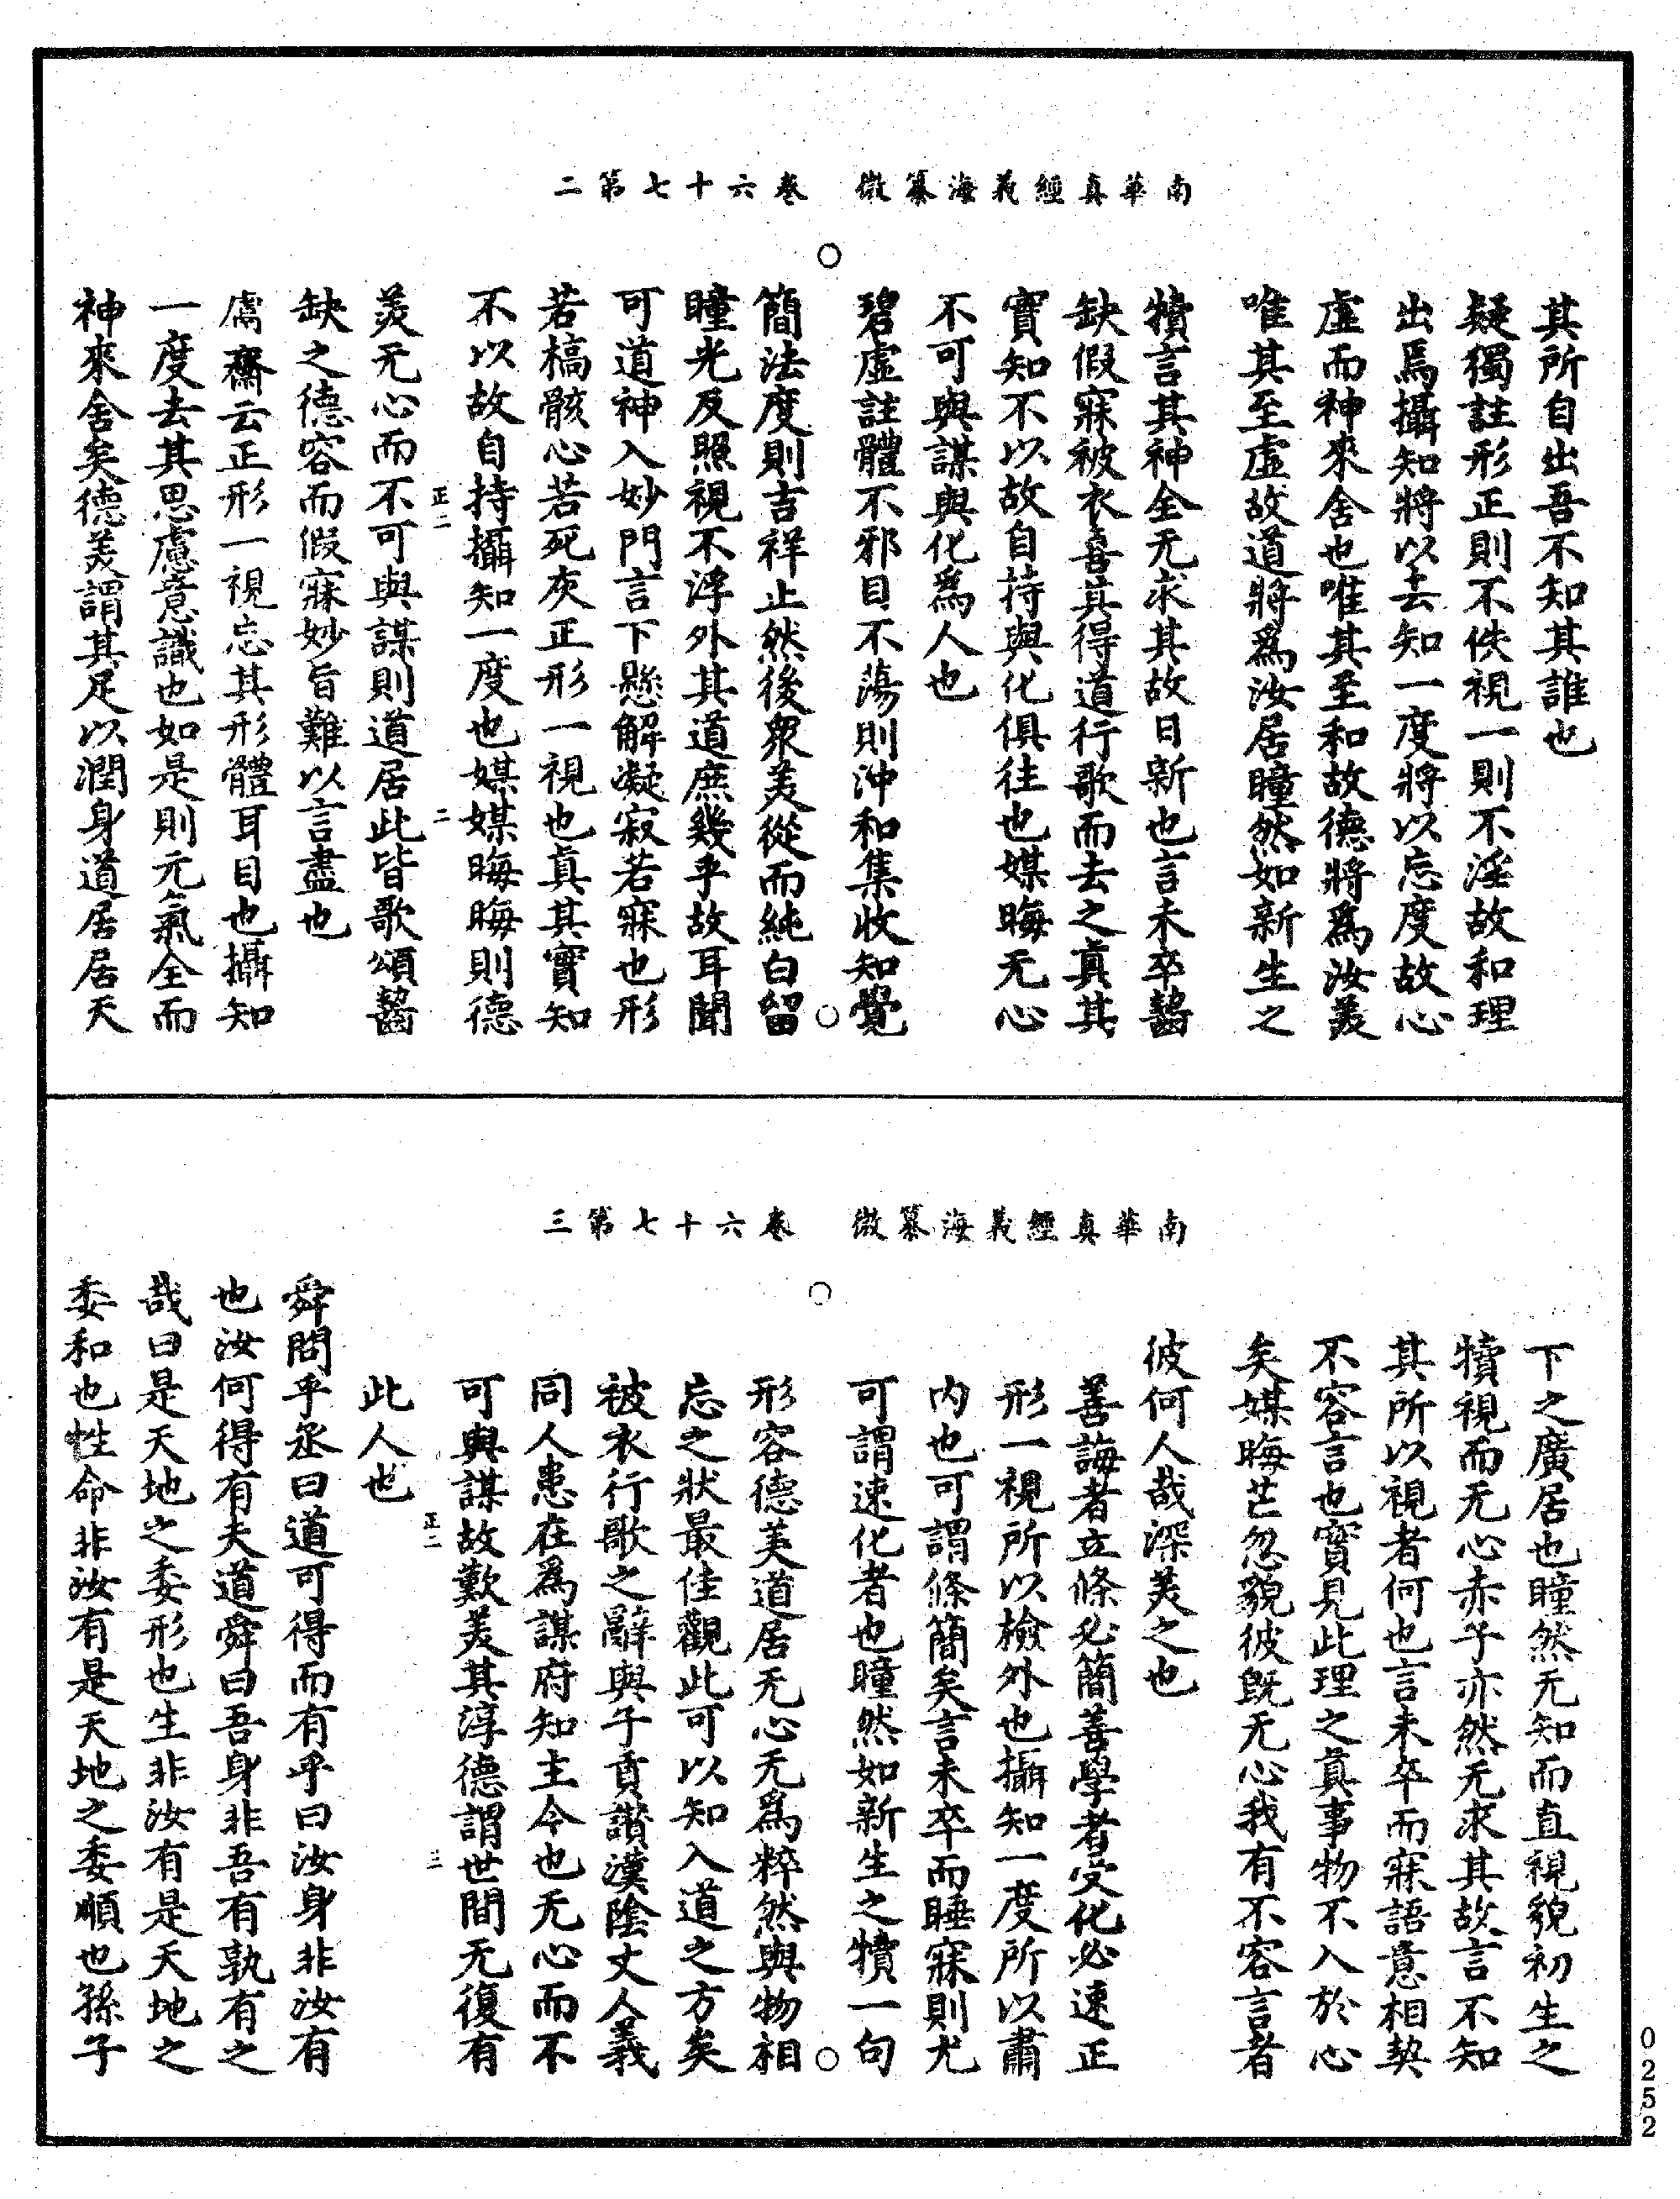 南華真經義海纂微　卷六十七第二
其所自出吾不知其誰也
疑獨註形正則不佚視一則不淫故和理
出焉攝知將以去知一度將以忘度故心
虛而神來舍也唯其至和故德將為汝美
唯其至虛故道將為汝居瞳然如新生之
犢言其神全无求其故日新也言未卒齧
缺假寐被衣喜其得道行歌而去之真其
實知不以故自持與化俱往也媒晦无心
不可與謀與化為人也
碧虛註體不邪目不蕩則沖和集收知覺
簡法度則吉祥止然後衆美從而純白留
瞳光反照視不浮外其道庶幾乎故耳聞
可道神入妙門言下懸解凝寂若寐也形
若槁骸心若死灰正形一視也真其實知
不以故自持攝知一度也媒媒晦晦則德
美无心而不可與謀則道居此皆歌頌齧
正二
二
缺之德容而假寐妙旨難以言盡也
鬳齋云正形一視忘其形體耳目也攝知
一度去其思慮意識也如是則元氣全而
神來舍矣德美謂其足以潤身道居居天
南華真經義海纂微　卷六十七第三
下之廣居也瞳然无知而直視貌初生之
犢視而无心赤子亦然无求其故言不知
其所以視者何也言未卒而寐語意相契
不容言也實見此理之真事物不入於心
矣媒晦芒忽貌彼既无心我有不容言者
彼何人哉深美之也
善誨者立條必簡善學者受化必速正
形一視所以檢外也攝知一度所以肅
內也可謂條簡矣言未卒而睡寐則尤
可謂速化者也瞳然如新生之犢一句
形容德美道居无心无為粹然與物相
忘之狀最佳觀此可以知入道之方矣
被衣行歌之辭與子貢讚漢陰丈人義
同人患在為謀府知主今也无心而不
可與謀故歎美其淳德謂世間无復有
正二
三
此人也
舜問乎丞曰道可得而有乎曰汝身非汝有
也汝何得有夫道舜曰吾身非吾有孰有之
哉曰是天地之委形也生非汝有是天地之
委和也性命非汝有是天地之委順也孫子
0252